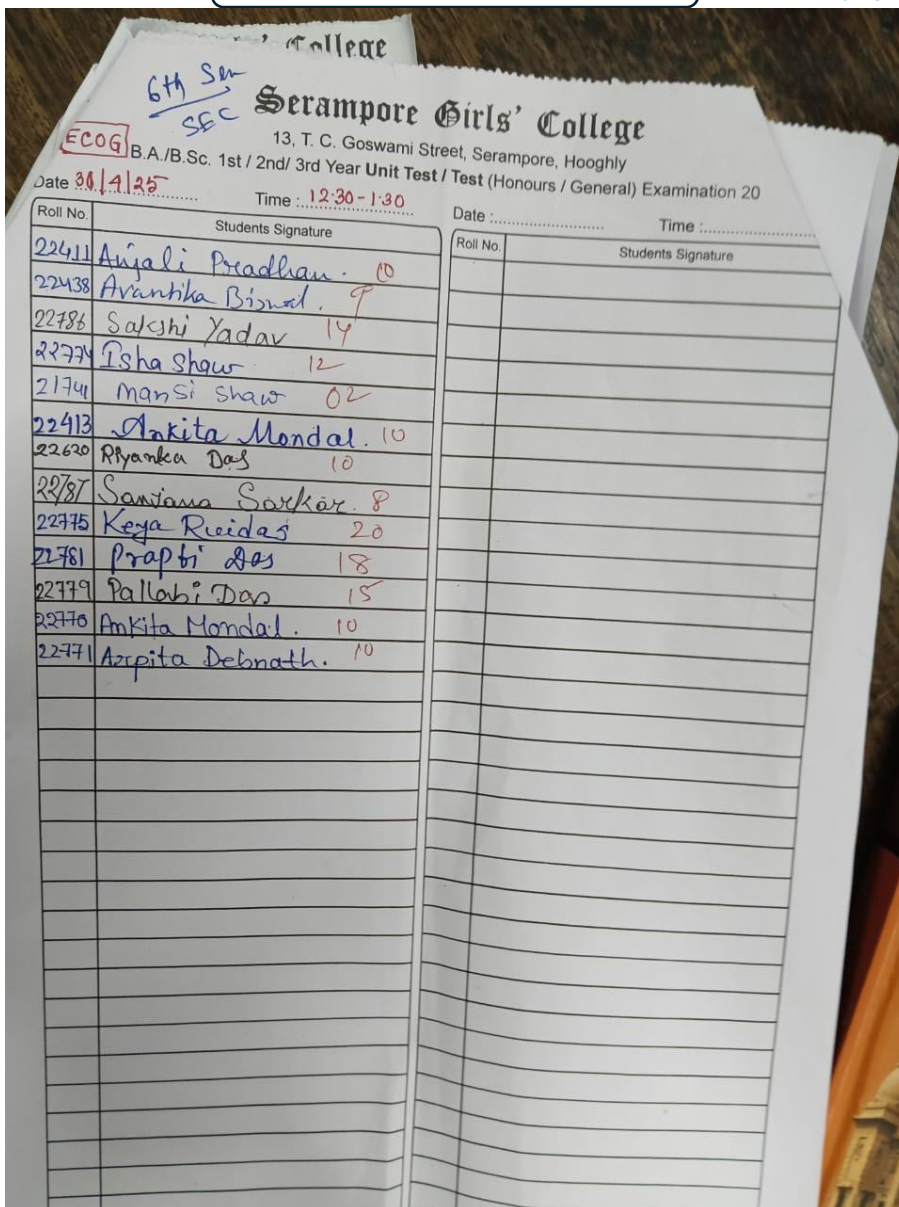 College
6th Sem
SEC
Serampore Girls' College
13, T. C. Goswami Street, Serampore, Hooghly
ECOG
B.A./B.Sc. 1st / 2nd/ 3rd Year Unit Test / Test (Honours / General) Examination 20
Date 30/4/25 Time : 12:30 - 1:30
Date : Time :
Roll No. Students Signature
Roll No. Students Signature
22411 Anjali Pradhan. 10
22438 Avantika Biswal. 9
22786 Sakshi Yadav 14
22774 Isha Shaw 12
21741 Mansi Shaw 02
22413 Ankita Mondal. 10
22620 Riyanka Das 10
22787 Sanjana Sarkar. 8
22775 Keya Ruidas 20
22781 Prapti Das 18
22779 Pallabi Das 15
22770 Ankita Mondal. 10
22771 Arpita Debnath. 10